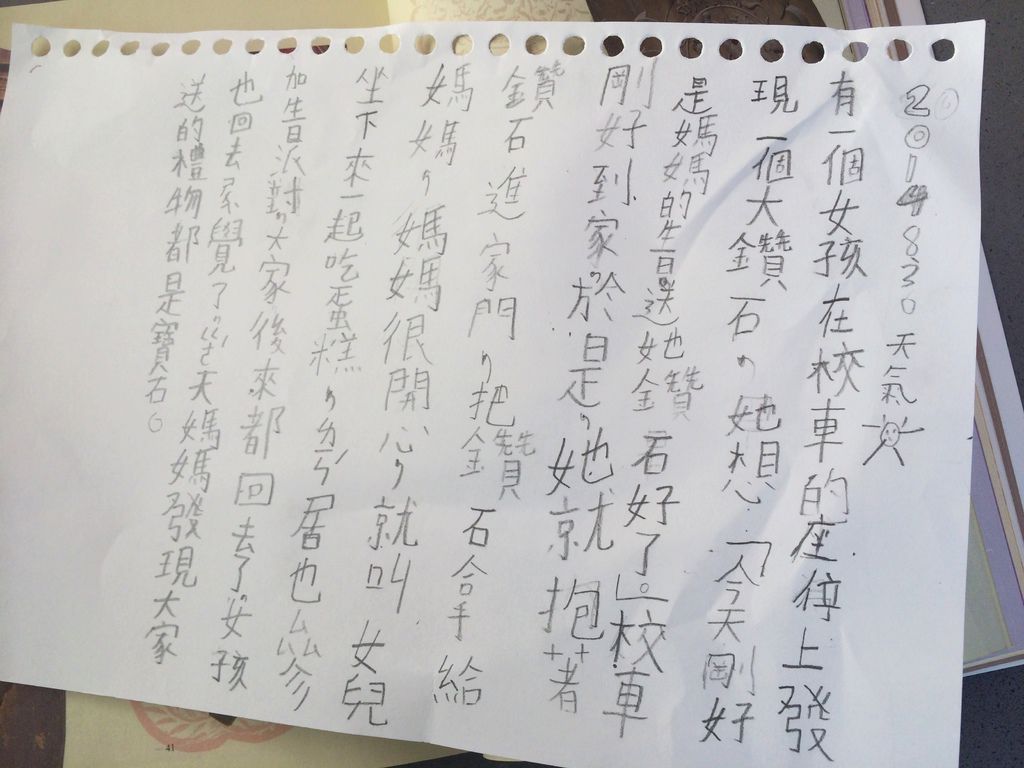 2014 8 30 天氣
有一個女孩在校車的座位上發
現一個大鑽石，她想：「今天剛好
是媽媽的生日送她鑽石好了」。校車
剛好到家，於是，她就抱著
鑽石進家門，把鑽石合手給
媽媽，媽媽很開心，就叫女兒
坐下來一起吃蛋糕，ㄌㄧㄣˊ居也ㄙ
加生日派對，大家後來都回去了，女孩
也回去睡覺了，天媽媽發現大家
送的禮物都是寶石。
41